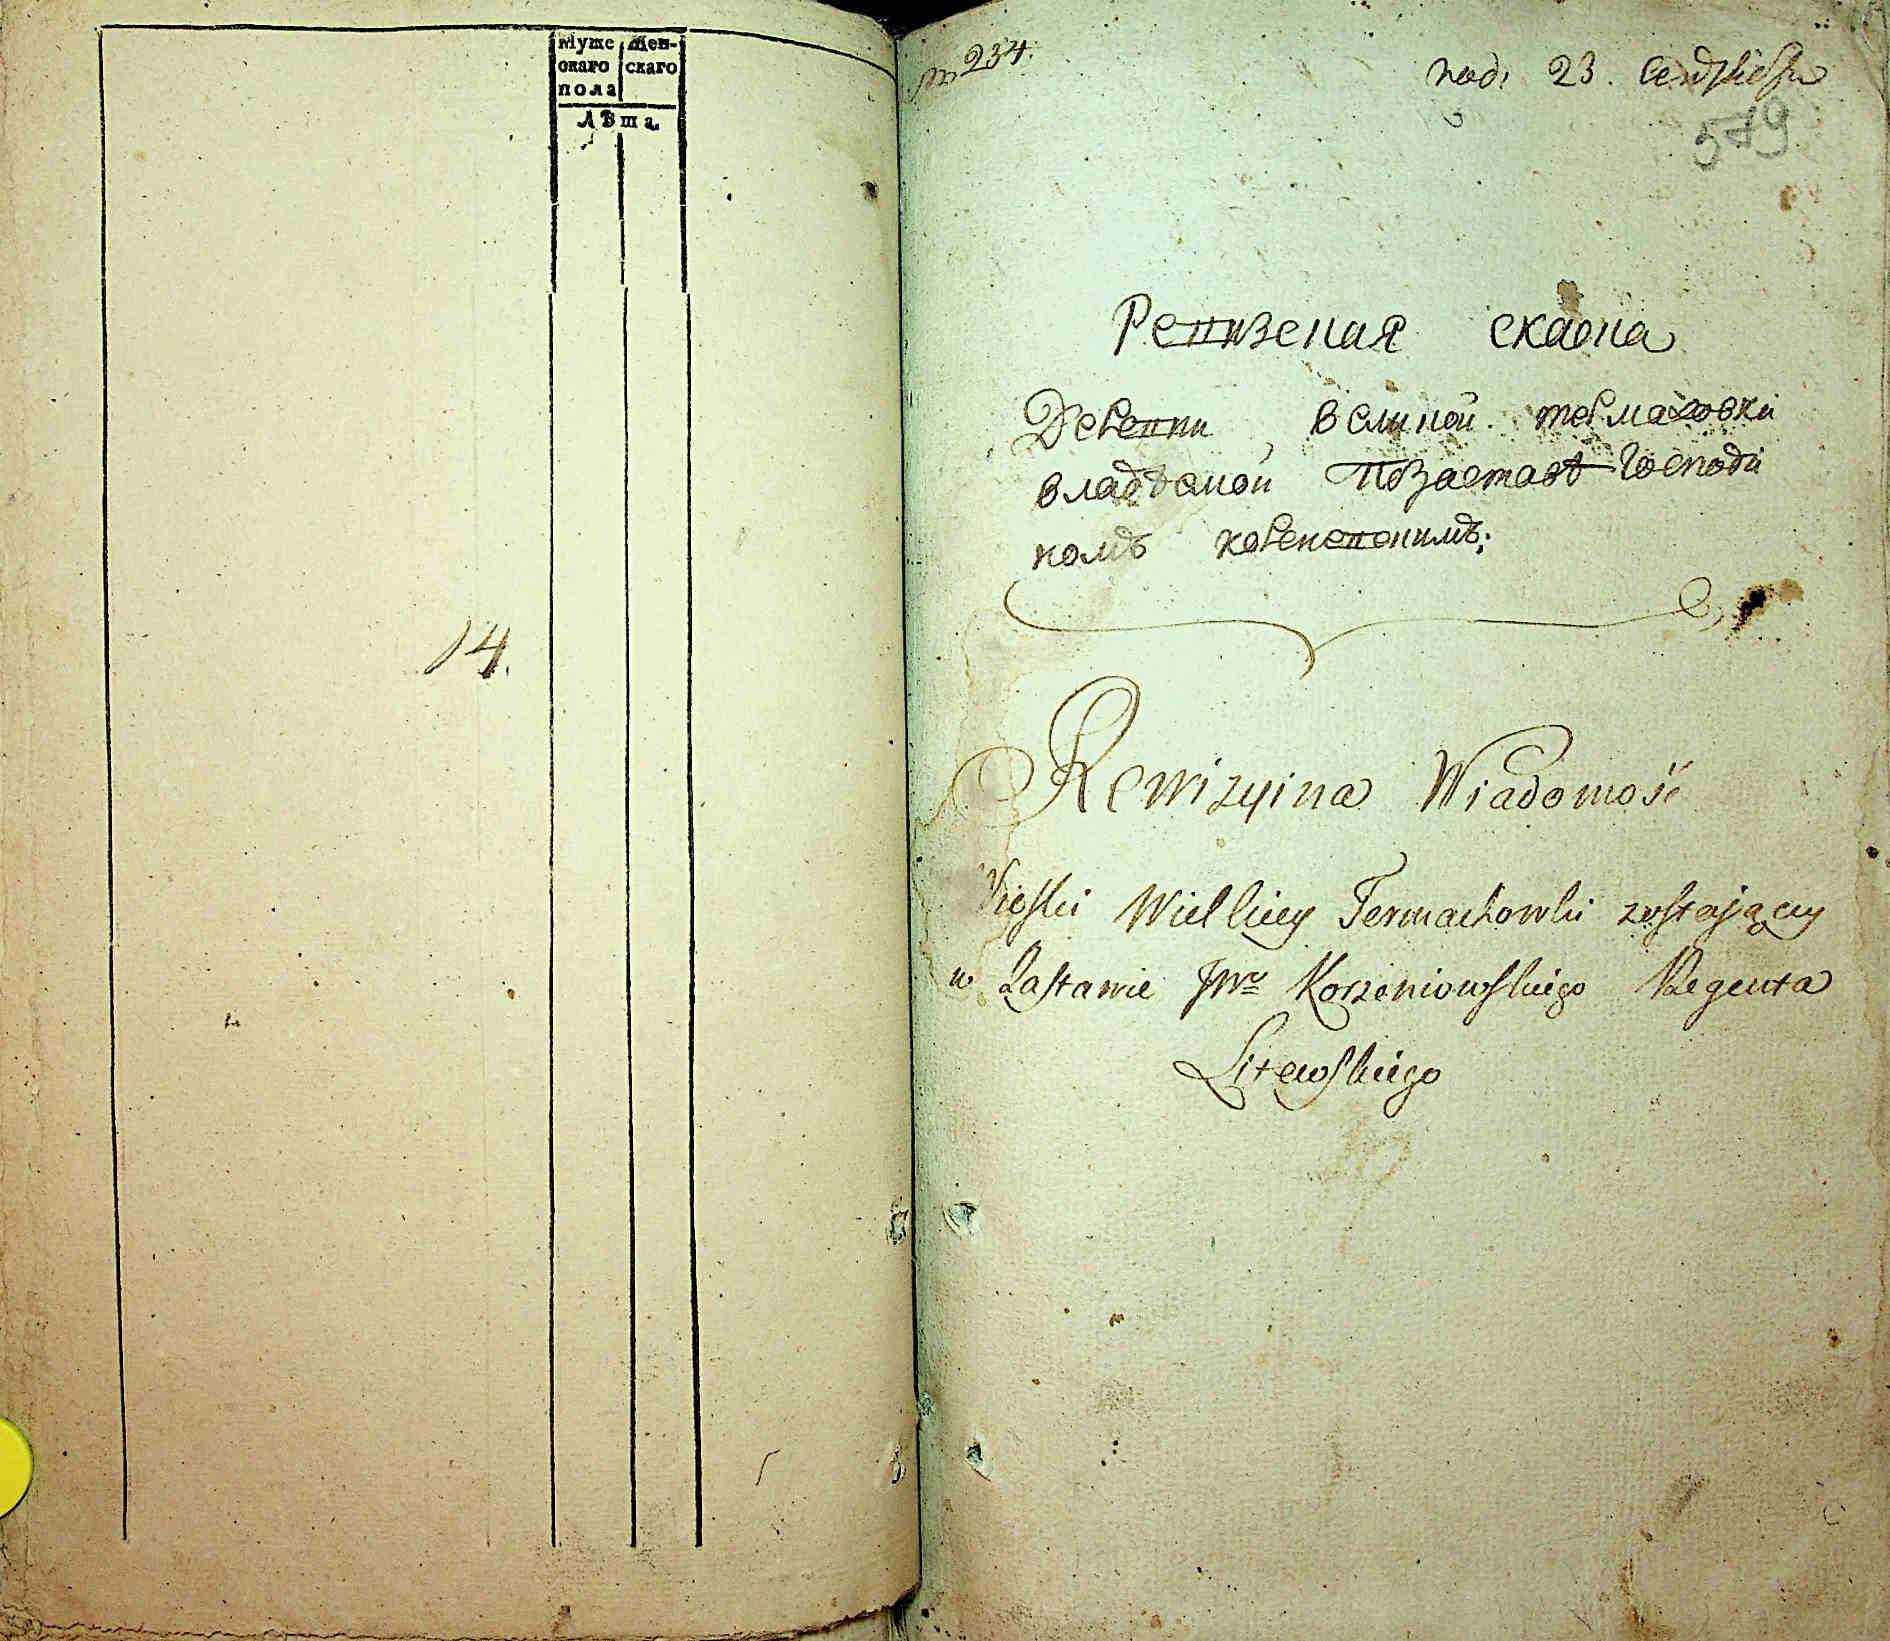 Муже Жен-
скаго скаго
пола
Лѣта.
14.
№ 234.
под: 23. сентября
579
Ревизская сказка
Деревни великой термаховки
владѣемой по заставѣ Господи
номъ корженевскимъ;
Rewizyina Wiadomość
Wioski Wielkiey Termachowki zostaiącey
w Zastawie JWo Korzeniowskiego Regenta
Litewskiego